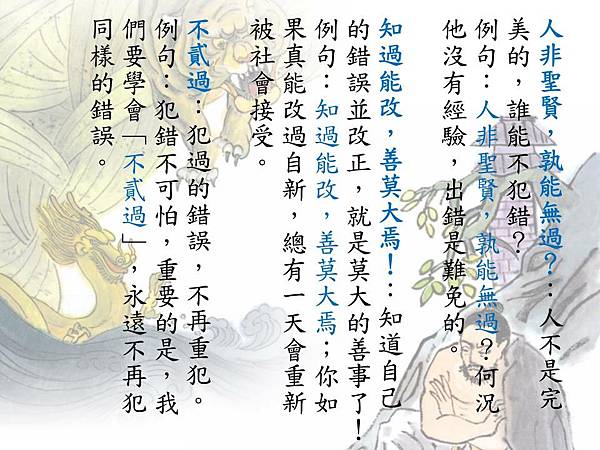 人非聖賢，孰能無過？：人不是完
美的，誰能不犯錯？
例句：人非聖賢，孰能無過？何況
他沒有經驗，出錯是難免的。
知過能改，善莫大焉！：知道自己
的錯誤並改正，就是莫大的善事了！
例句：知過能改，善莫大焉；你如
果真能改過自新，總有一天會重新
被社會接受。
不貳過：犯過的錯誤，不再重犯。
例句：犯錯不可怕，重要的是，我
們要學會「不貳過」，永遠不再犯
同樣的錯誤。